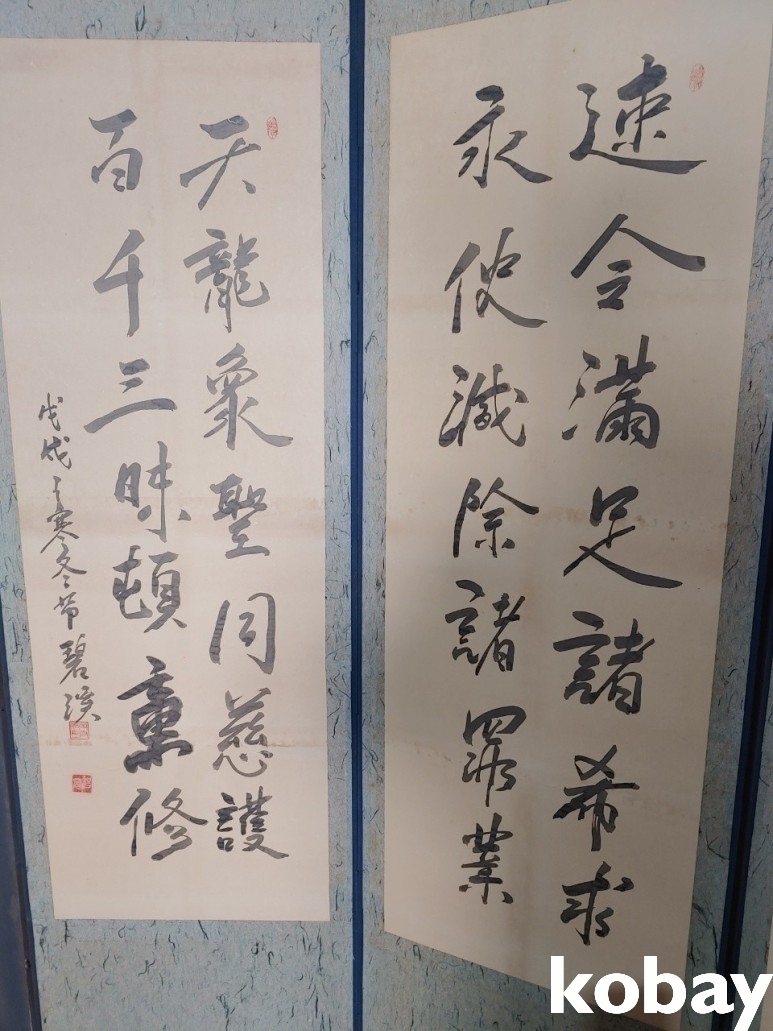 速令滿足諸希求
永使滅除諸罪業
天龍衆聖同慈護
百千三昧頓熏修
戊戌之寒冬节碧溪
kobay